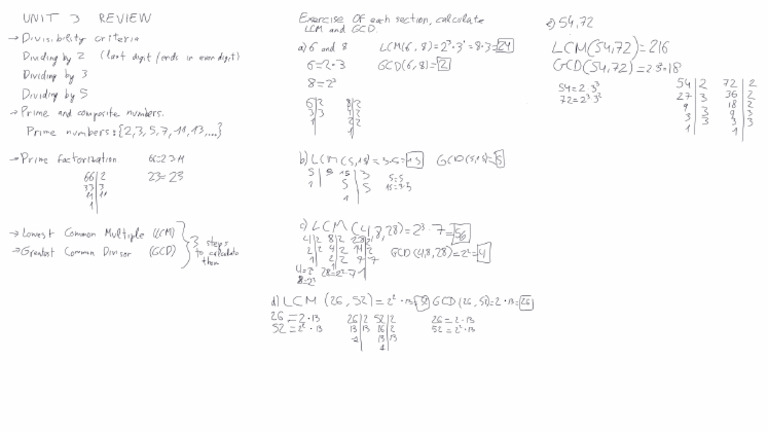 UNIT 3 REVIEW
→ Divisibility criteria
Dividing by 2 (last digit/ends in even digit)
Dividing by 3
Dividing by 5
→ Prime and composite numbers.
Prime numbers: {2,3,5,7,11,13,...}
→ Prime factorization
66 | 2
33 | 3
11 | 11
1 |
23 = 23
→ Lowest Common Multiple (LCM)
→ Greatest Common Divisor (GCD)
3 steps
to calculate
them
Exercise of each section, calculate
LCM and GCD.
a) 6 and 8 LCM(6,8)=2³·3¹=8·3=24
6=2·3 GCD(6,8)=2
8=2³
6 | 2 8 | 2
3 | 3
1 |
b) LCM(5,15)=3·5=15 GCD(5,15)=5
5=5
15=3·5
c) LCM(4,8,28)=2³·7=56
GCD(4,8,28)=2²=4
4=2²
8=2³
28=2²·7
d) LCM (26,52)=2²·13=52 GCD(26,52)=2·13=26
26=2·13 26 | 2 52 | 2 26=2·13
52=2²·13 13 | 13 26 | 2 52=2²·13
1 | 13 | 13
1 |
e) 54,72
LCM(54,72)=216
GCD(54,72)=2·3²=18
54=2·3³ 54 | 2 72 | 2
72=2³·3² 27 | 3 36 | 2
9 | 3 18 | 2
3 | 3 9 | 3
1 | 3 | 3
1 |